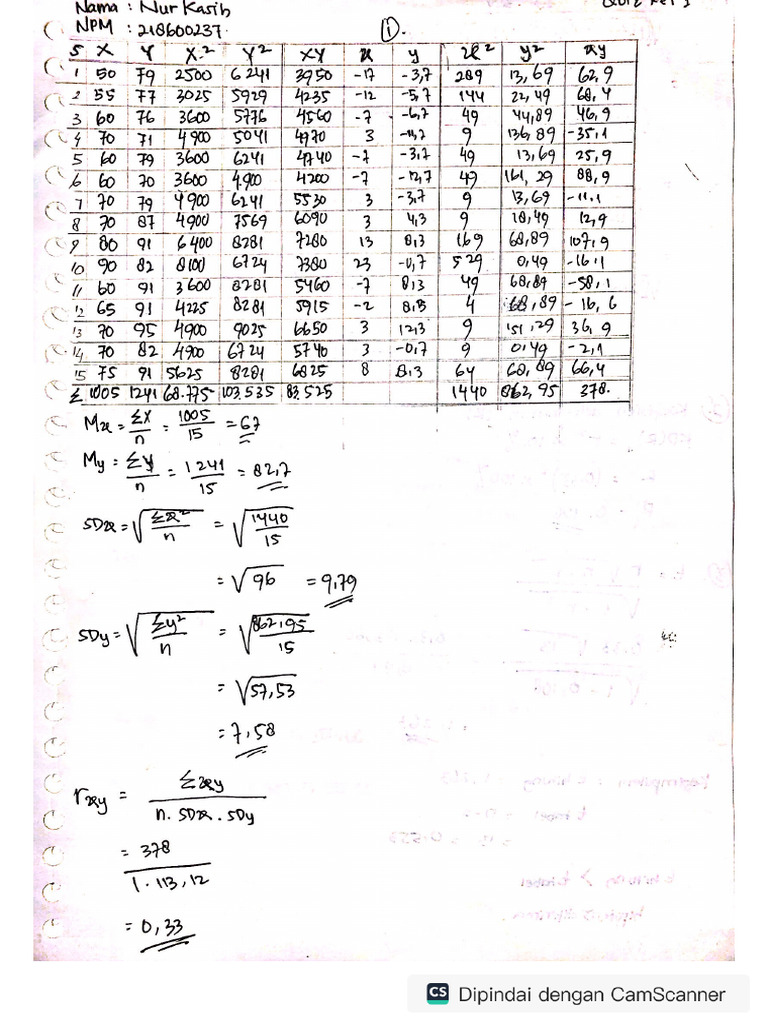 Nama : Nur Kasih
NPM : 218600237.
①.
S X Y X² Y² XY x y x² y² xy
1 50 79 2500 6241 3950 -17 -3,7 289 13,69 62,9
2 55 77 3025 5929 4235 -12 -5,7 144 22,49 68,4
3 60 76 3600 5776 4560 -7 -6,7 49 44,89 46,9
4 70 71 4900 5041 4970 3 -11,7 9 136,89 -35,1
5 60 79 3600 6241 4740 -7 -3,7 49 13,69 25,9
6 60 70 3600 4.900 4200 -7 -12,7 49 161,29 88,9
7 70 79 4900 6241 5530 3 -3,7 9 13,69 -11.1
8 70 87 4900 7569 6090 3 4,3 9 18,49 12,9
9 80 91 6400 8281 7280 13 8,3 169 68,89 107,9
10 90 82 8100 6724 7380 23 -0,7 529 0,49 -16.1
11 60 91 3600 8281 5460 -7 8,3 49 68,89 -58,1
12 65 91 4225 8281 5915 -2 8,3 4 68,89 -16,6
13 70 95 4900 9025 6650 3 12,3 9 151,29 36,9
14 70 82 4900 6724 5740 3 -0,7 9 0,49 -2,1
15 75 91 5625 8281 6825 8 8,3 64 68,89 66,4
Σ 1005 1241 68.775 103.535 83.525 1440 862,95 378.
Mx = ΣX/n = 1005/15 = 67
My = Σy/n = 1241/15 = 82,7
SDx = √Σx²/n = √1440/15
= √96 = 9,79
SDy = √Σy²/n = √862,95/15
= √57,53
= 7,58
rxy = Σxy / n. SDx . SDy
= 378 / 1.113,12
= 0,33
CS Dipindai dengan CamScanner